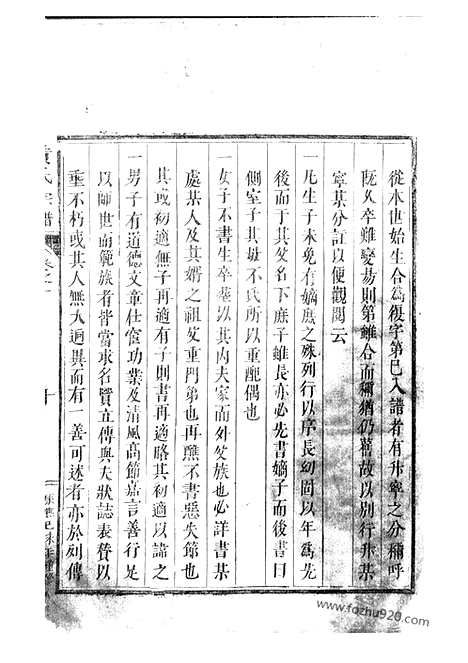 從本世始生合為複字第已入譜者有升寧之分稱呼
既久卒難變易則第雖合而稱猶仍舊故以別行升某
寧某分註以便觀閱云
一凡生子未免有嫡庶之殊列行以序長幼固以年為先
後而于其父名下庶子雖長亦必先書嫡子而後書曰
側室子其母不氏所以重配偶也
一女子不書生卒葬以其內夫家而外父族也必詳書某
處某人及其婿之祖父重門第也再醮不書惡失節也
其或初適無子再適有子則書再適略其初適以諱之
一男子有道德文章仕宦功業及清風高節嘉言善行足
以師世而範族者皆當求名賢立傳與夫狀誌表贊以
垂不朽或其人無大過異而有一善可述者亦於列傳
氏宗譜
卷之一
十
www.fozhu920.com